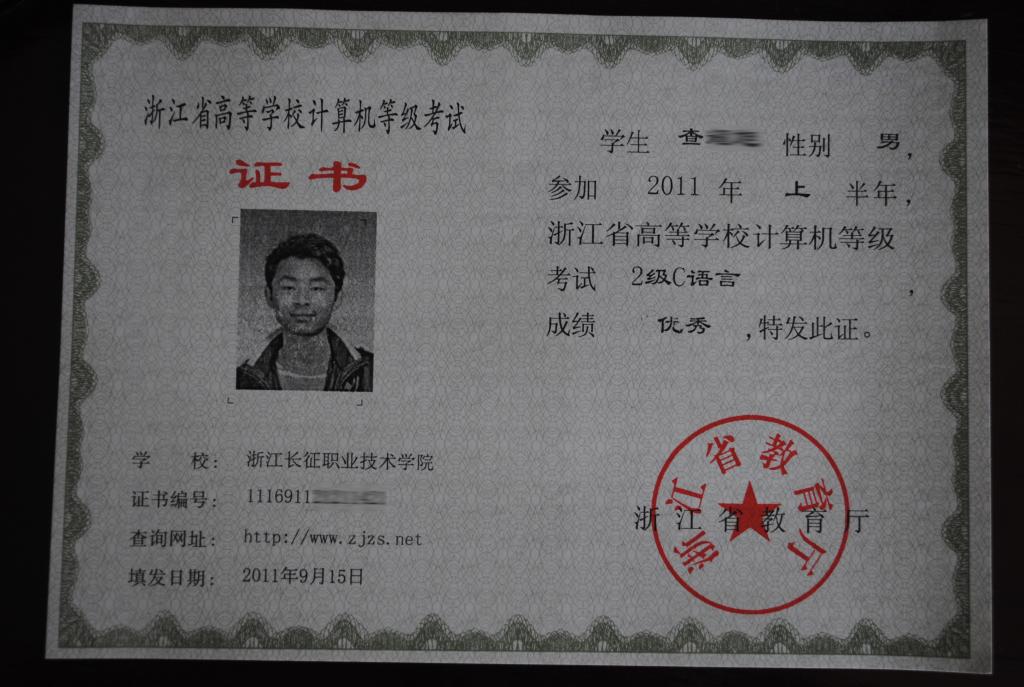 浙江省高等学校计算机等级考试
证书
学校：浙江长征职业技术学院
证书编号：1116911
查询网址：http://www.zjzs.net
填发日期：2011年9月15日
学生 查 性别 男，
参加 2011 年 上 半年，
浙江省高等学校计算机等级
考试 2级C语言 ，
成绩 优秀 ，特发此证。
浙江省教育厅
浙江省教育厅